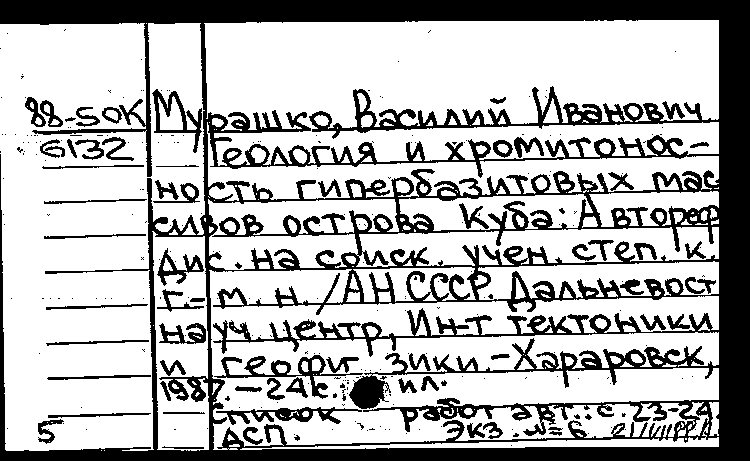 88-50К Мурашко, Василий Иванович
6132 Геология и хромитонос-
ность гипербазитовых мас
сивов острова Куба: Автореф
дис. на соиск. учен. степ. к.
г.-м. н. /АН СССР. Дальневост
науч. центр, Ин-т тектоники
и геофизики.-Хараровск,
1987.-24с. ил.
Список работ авт.: с. 23-24.
5 ДСП. Экз. №6